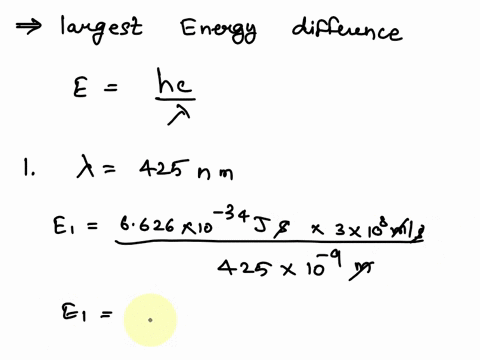 ⇒ largest Energy difference
E = hc/λ
1. λ = 425 nm
E₁ = 6.626 × 10⁻³⁴ J s × 3 × 10⁸ m/s / 425 × 10⁻⁹ m
E₁ =